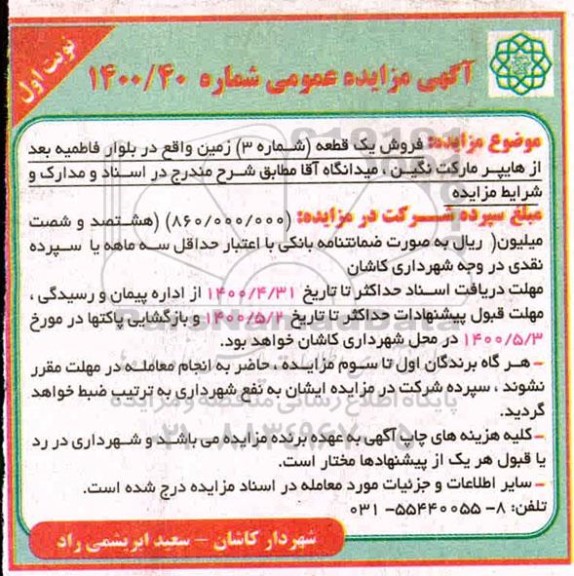 نوبت اول
آگهی مزایده عمومی شماره ۱۴۰۰/۴۰
موضوع مزایده: فروش یک قطعه (شماره ۳) زمین واقع در بلوار فاطمیه بعد
از هایپر مارکت نگین ، میدانگاه آقا مطابق شرح مندرج در اسناد و مدارک و
شرایط مزایده
مبلغ سپرده شرکت در مزایده: (۸۶۰/۰۰۰/۰۰۰) (هشتصد و شصت
میلیون( ریال به صورت ضمانتنامه بانکی با اعتبار حداقل سه ماهه یا سپرده
نقدی در وجه شهرداری کاشان
مهلت دریافت اسناد حداکثر تا تاریخ ۱۴۰۰/۴/۳۱ از اداره پیمان و رسیدگی ،
مهلت قبول پیشنهادات حداکثر تا تاریخ ۱۴۰۰/۵/۲ و بازگشایی پاکتها در مورخ
۱۴۰۰/۵/۳ در محل شهرداری کاشان خواهد بود.
- هر گاه برندگان اول تا سوم مزایده ، حاضر به انجام معامله در مهلت مقرر
نشوند ، سپرده شرکت در مزایده ایشان به نفع شهرداری به ترتیب ضبط خواهد
گردید.
- کلیه هزینه های چاپ آگهی به عهده برنده مزایده می باشد و شهرداری در رد
یا قبول هر یک از پیشنهادها مختار است.
- سایر اطلاعات و جزئیات مورد معامله در اسناد مزایده درج شده است.
تلفن: ۸- ۵۵۴۴۰۰۵۵- ۰۳۱
شهردار کاشان – سعید ابریشمی راد
پایگاه اطلاع رسانی مناقصه و مزایده